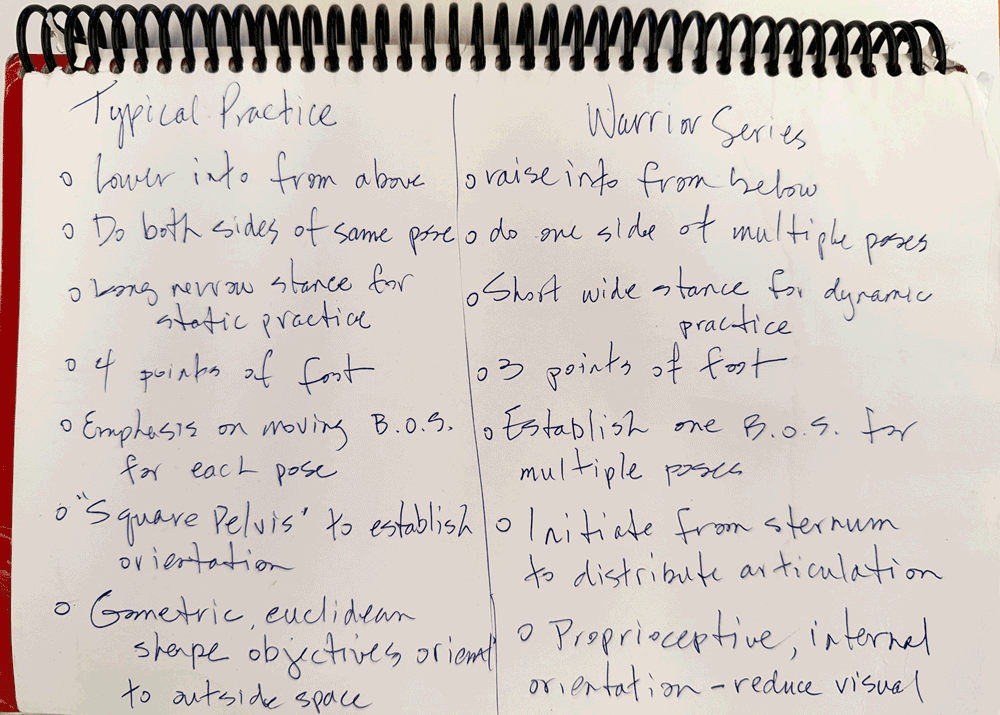 Typical Practice
o Lower into from above
o Do both sides of same pose
o Long nerrow stance for
static practice
o 4 points of foot
o Emphasis on moving B.O.S.
for each pose
o "Square Pelvis" to establish
orientation
o Gometric, euclidean
shape objectives orient
to outside space
Warrior Series
o raise into from below
o do one side of multiple poses
o Short wide stance for dynamic
practice
o 3 points of foot
o Establish one B.O.S. for
multiple poses
o Initiate from sternum
to distribute articulation
o Proprioceptive, internal
orientation - reduce visual